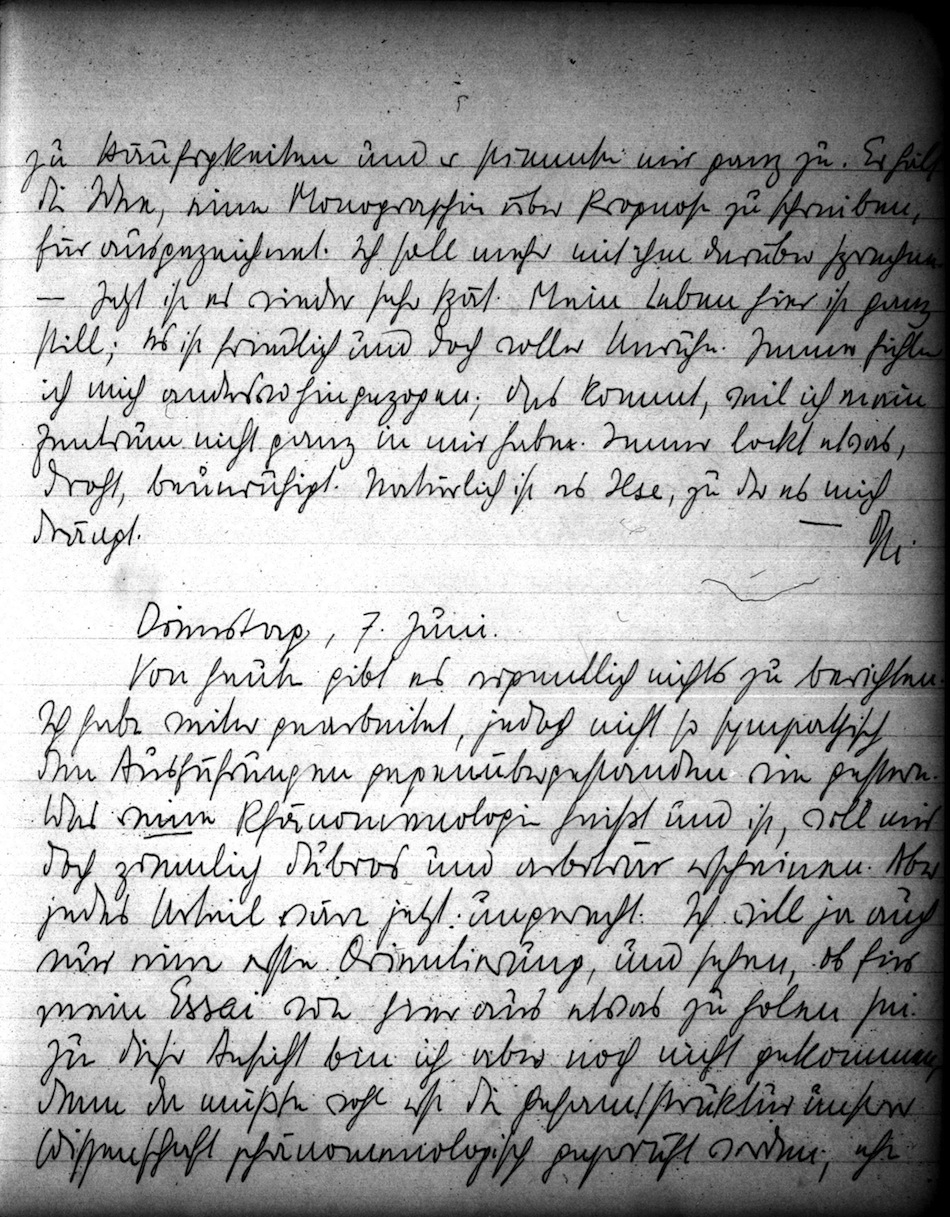 zu Häufigkeiten und er stimmte mir ganz zu. Er hält
die Idee, eine Monographie über Prognose zu schreiben,
für ausgezeichnet. Ich soll mehr mit ihm darüber sprechen.
— Jetzt ist es wieder sehr spät. Mein Leben hier ist ganz
still; es ist friedlich und doch voller Unruhe. Immer fühle
ich mich anderswo hingezogen; das kommt, weil ich mein
Zentrum nicht ganz in mir habe. Immer lockt etwas,
droht, beunruhigt. Natürlich ist es Ilse, zu der es mich
drängt. —
Dienstag, 7. Juni.
Von heute gibt es eigentlich nichts zu berichten.
Ich habe weiter gearbeitet, jedoch nicht so sympathisch
den Ausführungen gegenübergestanden wie gestern.
Was eine Phänomenologie heißt und ist, will mir
doch ziemlich dubios und arbiträr erscheinen. Aber
jedes Urteil wäre jetzt ungerecht. Ich will ja auch
nur eine erste Orientierung, und sehen, ob für
mein Essai von hier aus etwas zu holen sei.
Zu dieser Ansicht bin ich aber noch nicht gekommen,
denn da müßte wohl erst die Gesamtstruktur unserer
Wissenschaft phänomenologisch geprüft werden, ehe